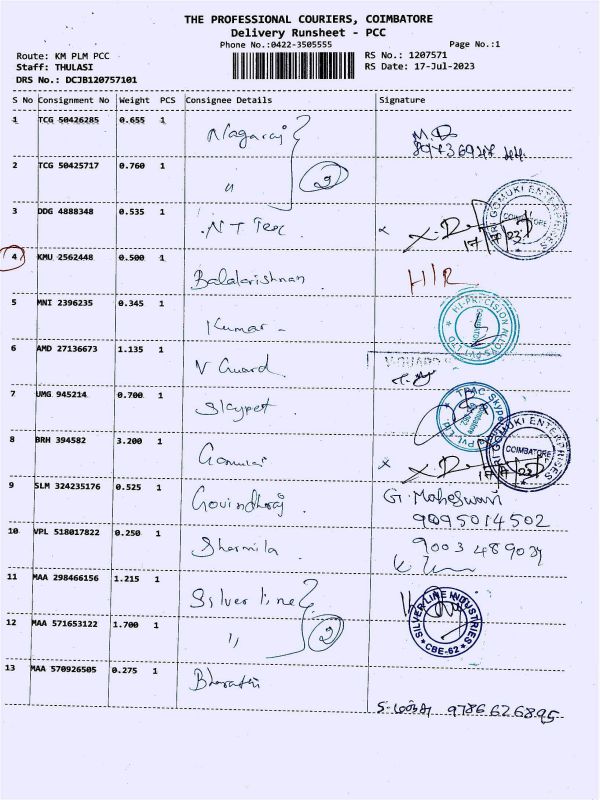 THE PROFESSIONAL COURIERS, COIMBATORE
Delivery Runsheet - PCC
Phone No.:0422-3505555 Page No.:1
Route: KM PLM PCC RS No.: 1207571
Staff: THULASI RS Date: 17-Jul-2023
DRS No.: DCJB120757101
S No Consignment No Weight PCS Consignee Details Signature
1 TCG 50426285 0.655 1 Nagaraj
2 TCG 50425717 0.760 1 " 2
3 DDG 4888348 0.535 1 N T Tec x 17/7/23
SRI GOMUKI ENTERPRISES COIMBATORE
4 KMU 2562448 0.500 1 Balakrishnan H/R
5 MNI 2396235 0.345 1 Kumar -
HI-PRECISION ALLOYS PVT LTD
6 AMD 27136673 1.135 1 V Guard V-GUARD
7 UMG 945214 0.700 1 Skypet
TPAC Skypet PVT. Ltd
8 BRH 394582 3.200 1 Gomuki x 17/7/23
SRI GOMUKI ENTERPRISES COIMBATORE
9 SLM 324235176 0.525 1 Govindharaj G. Maheswari
9095014502
10 VPL 518017822 0.250 1 Sharmila
11 MAA 298466156 1.215 1 Silver line
12 MAA 571653122 1.700 1 " 2
SILVER-LINE INDUSTRIES CBE-62
13 MAA 570926505 0.275 1 Bharathi
9786626895